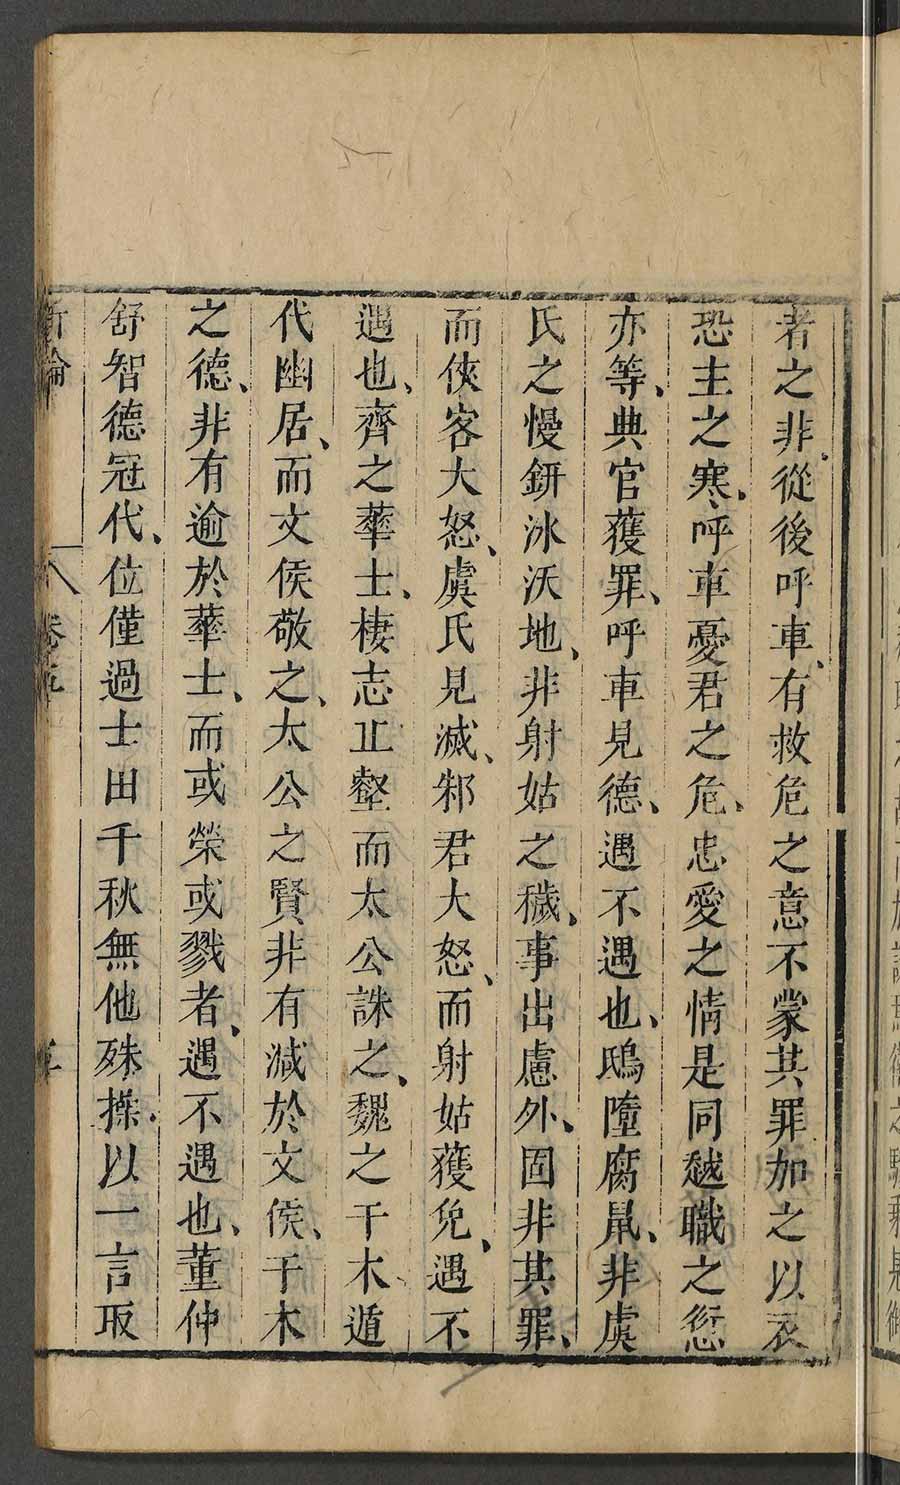 者之非從後呼車有救危之意不蒙其罪加之以衣
恐主之寒呼車憂君之危忠愛之情是同越職之愆
亦等典官獲罪呼車見德遇不遇也鴟墮腐鼠非虞
氏之慢缾水沃地非射姑之穢事出慮外固非其罪
而俠客大怒虞氏見滅邾君大怒而射姑獲免遇不
遇也齊之華士棲志丘壑而太公誅之魏之干木遁
代幽居而文侯敬之太公之賢非有減於文侯干木
之德非有逾於華士而或榮或戮者遇不遇也董仲
舒智德冠代位僅過士田千秋無他殊操以一言取
新論 卷五